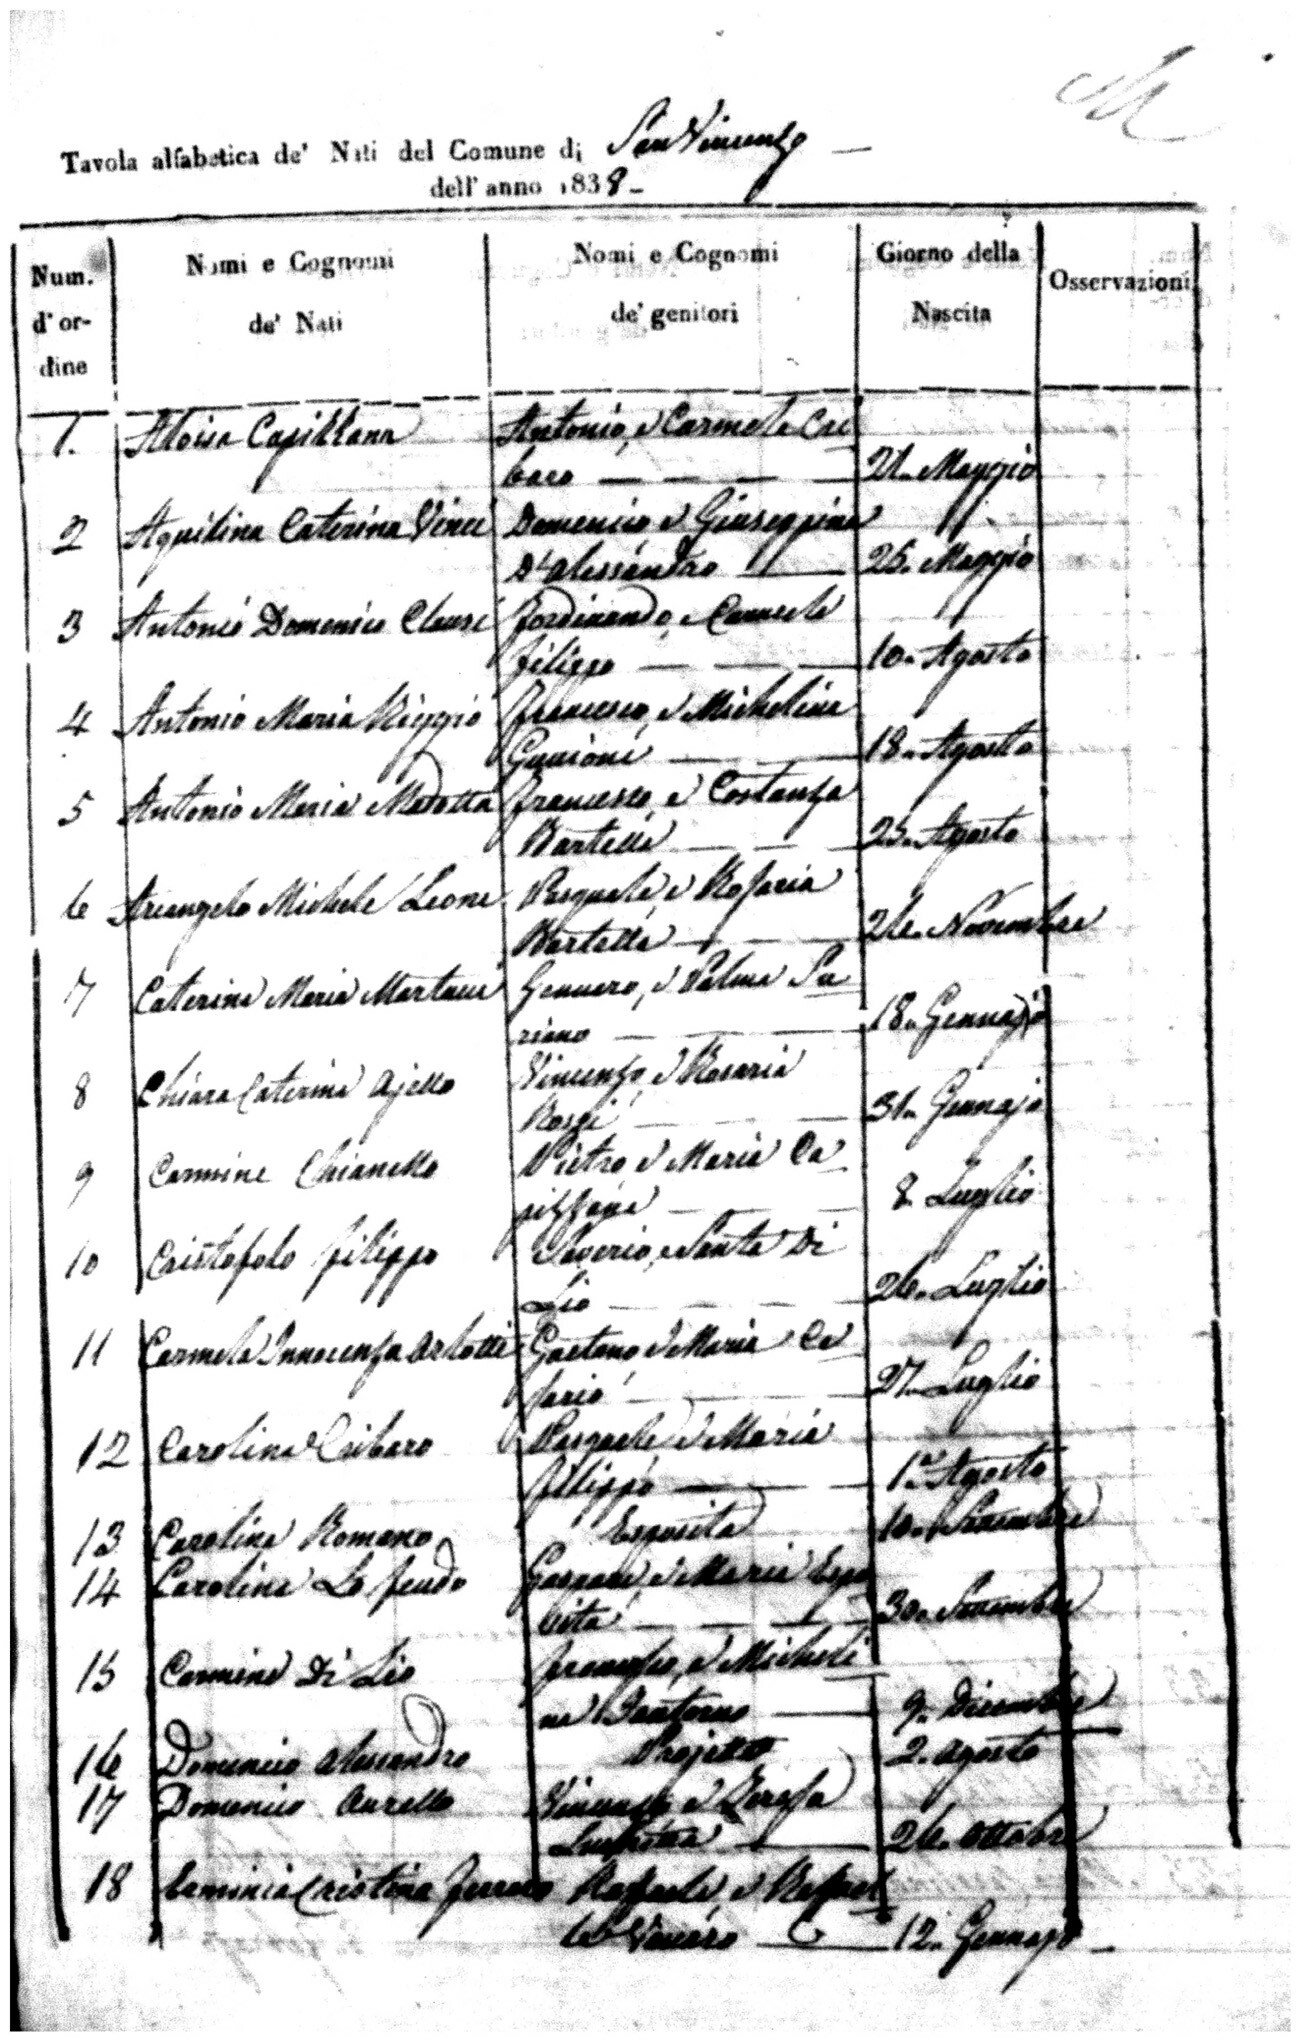 Tavola alfabetica de' Nati del Comune di San Vincenzo —
dell' anno 1838 -
Num. d'ordine
Nomi e Cognomi de' Nati
Nomi e Cognomi de' genitori
Giorno della Nascita
Osservazioni
1. Aloisa Capizzana Antonio, e Carmela Cri
baro — 21. Maggio
2 Aquilina Caterina Vinci Domenico e Giuseppina
D'Alessandro — 25. Maggio
3 Antonio Domenico Ferdinando, e Carmela
Filippo — 10. Agosto
4 Antonio Maria Reggio Francesco, e Michelina
18. Agosto
5 Antonio Maria Madotta Francesco, e Costanza
Martelli — 25. Agosto
6 Arcangelo Michele Leone Pasquale, e Rosaria
Martelli — 26. Novembre
7 Caterina Maria Martucci Gennaro, e Palma Su
riano — 18. Gennajo
8 Chiara Caterina Ajello Vincenzo, e Rosaria
31. Gennajo
9 Carmine Chianello Pietro e Maria Ca
pizzana — 8. Luglio
10 Cristofolo Filippo Saverio, e Santa Di
Lio — 26. Luglio
11 Carmela Innocenza Arlotti Gaetano e Maria Ca
27. Luglio
12 Carolina Cribaro Pasquale, e Maria
Filippo — 1. Agosto
13 Carolina Romano Esposita
14 Carolina Lo Feudo Gaspare, e Maria Espo
sita — 30.
15 Carmine Di Lio Francesco, e Micheli
na Santoro — 9. Dicembre
16 Domenico Alessandro Projetto 2. Agosto
17 Domenico Aurello Vincenzo e Teresa
26. Ottobre
18 Erminia Cristina Ferraro Raffaele, e Raffael
12. Gennajo —